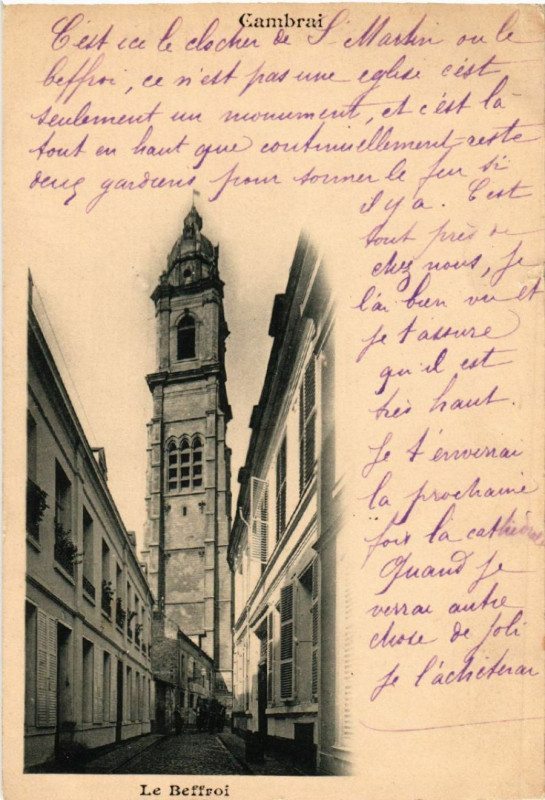 Cambrai
C'est ice le clocher de St Martin ou le
beffroi, ce n'est pas une eglise c'est
seulement un monument, et c'est là
tout en haut que continuellement reste
deux gardiens pour sonner le feu si
il y a. C'est
tout près de
chez nous, je
l'ai bien vu et
je t'assure
qu'il est
très haut.
Je t'enverrai
la prochaine
fois la cathédrale
Quand je
verrai autre
chose de joli
je l'achèterai
Le Beffroi